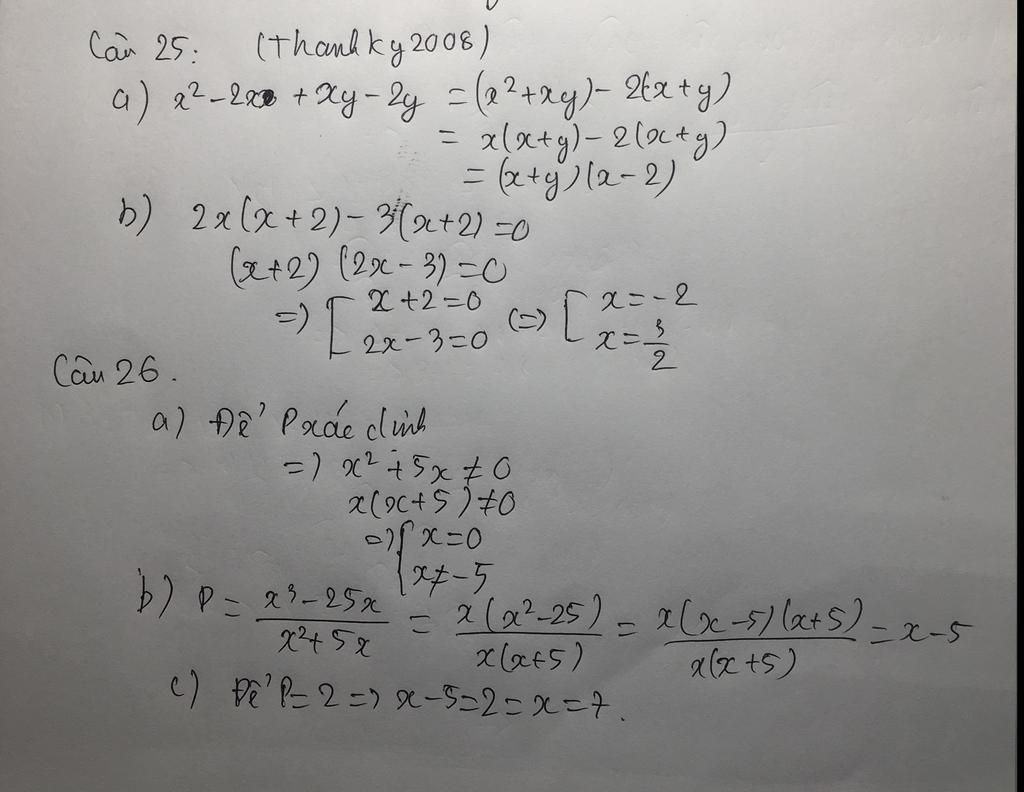 Câu 25: (thanhky2008)
a) x² - 2x + xy - 2y = (x² + xy) - 2(x + y)
= x(x + y) - 2(x + y)
= (x + y)(x - 2)
b) 2x(x + 2) - 3(x + 2) = 0
(x + 2) (2x - 3) = 0
=) [ x + 2 = 0 (=) [ x = -2
2x - 3 = 0 x = 3/2
Câu 26.
a) Để P xác định
=) x² + 5x ≠ 0
x(x + 5) ≠ 0
=) { x = 0
x ≠ -5
b) P = x³ - 25x / x² + 5x = x(x² - 25) / x(x + 5) = x(x - 5)(x + 5) / x(x + 5) = x - 5
c) Để P = 2 =) x - 5 = 2 = x = 7.